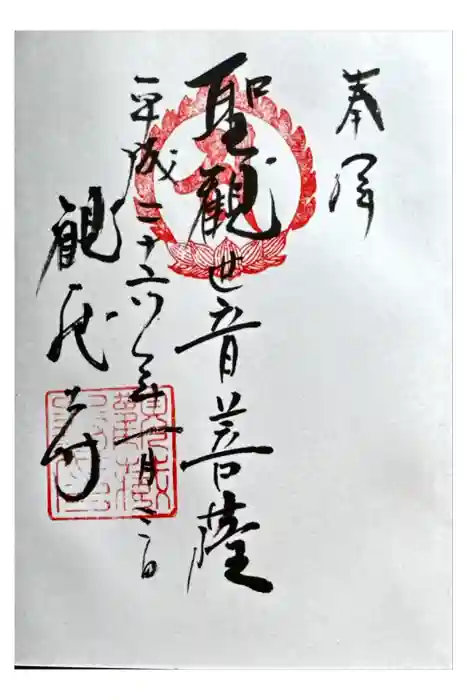 奉拝
聖観世音菩薩
平成二十六年一月日
観蔵寺